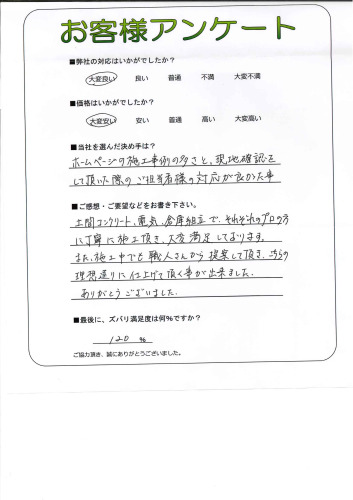 お客様アンケート
■弊社の対応はいかがでしたか？
大変良い 良い 普通 不満 大変不満
■価格はいかがでしたか？
大変安い 安い 普通 高い 大変高い
■当社を選んだ決め手は？
ホームページの施工事例の多さと、現地確認を
して頂いた際のご担当者様の対応が良かった事
■ご感想・ご要望などをお書き下さい。
土間コンクリート、電気、倉庫組立で、それぞれのプロの方
に丁寧に施工頂き、大変満足しております。
また、施工中でも職人さんから提案して頂き、こちらの
理想通りに仕上げて頂く事が出来ました。
ありがとうございました。
■最後に、ズバリ満足度は何％ですか？
120 %
ご協力頂き、誠にありがとうございました。